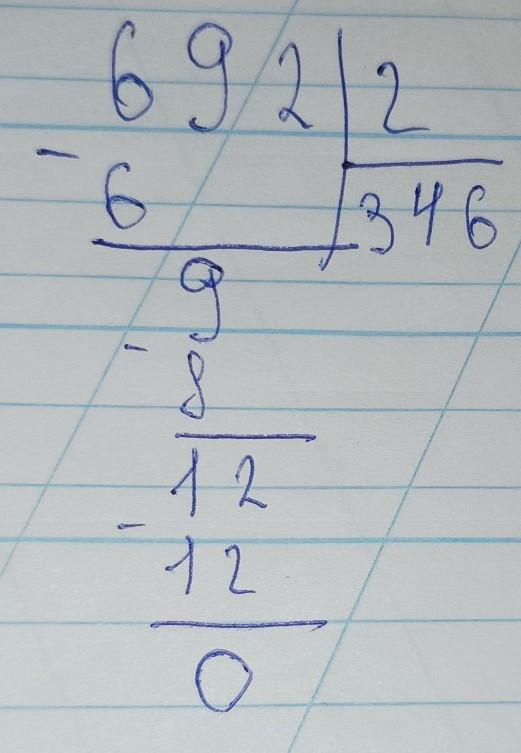 692 2
- 6 346
9
- 8
12
- 12
0